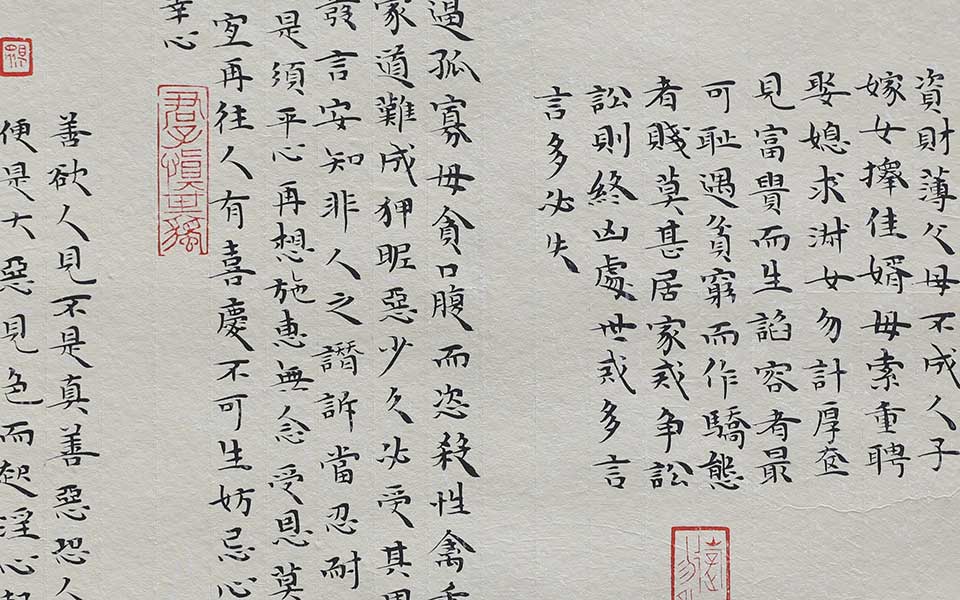 資財薄父母不成人子
嫁女擇佳婿毋索重聘
娶媳求淑女勿計厚奩
見富貴而生諂容者最
可耻遇貧窮而作驕態
者賤莫甚居家戒争訟
訟則終凶處世戒多言
言多必失
逼孤寡毋貪口腹而恣殺性禽
家道難成狎昵惡少久必受其
發言安知非人之譖訴當忍耐
是須平心再想施惠無念受恩莫
宜再往人有喜慶不可生妨忌心
幸心
君子慎其獨
善欲人見不是真善惡恐人
便是大惡見色而起淫心